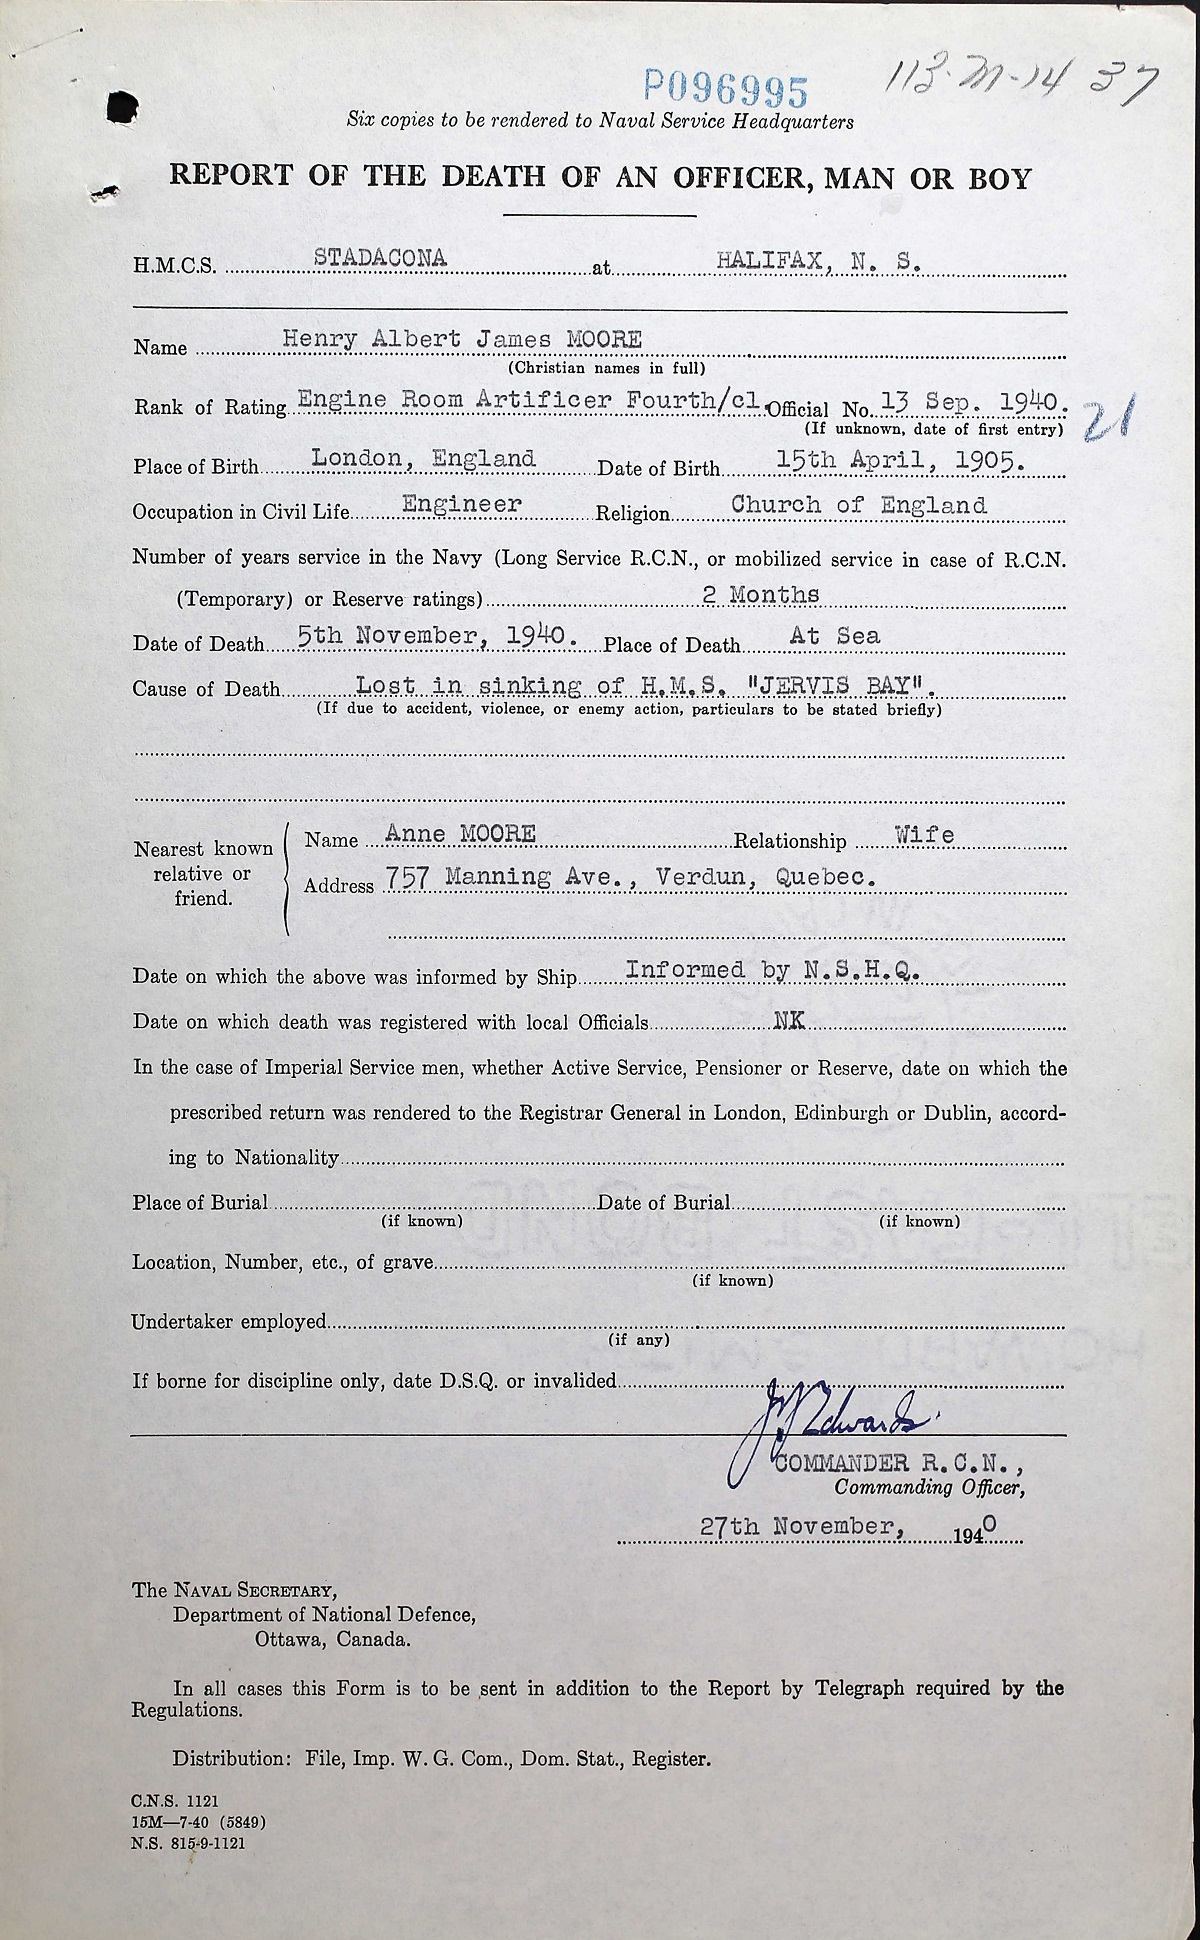 P096995
113-M-14 37
Six copies to be rendered to Naval Service Headquarters
REPORT OF THE DEATH OF AN OFFICER, MAN OR BOY
H.M.C.S. STADACONA at HALIFAX, N. S.
Name Henry Albert James MOORE
(Christian names in full)
Rank of Rating Engine Room Artificer Fourth/cl. Official No. 13 Sep. 1940.
21
(If unknown, date of first entry)
Place of Birth London, England Date of Birth 15th April, 1905.
Occupation in Civil Life Engineer Religion Church of England
Number of years service in the Navy (Long Service R.C.N., or mobilized service in case of R.C.N.
(Temporary) or Reserve ratings) 2 Months
Date of Death 5th November, 1940. Place of Death At Sea
Cause of Death Lost in sinking of H.M.S. "JERVIS BAY".
(If due to accident, violence, or enemy action, particulars to be stated briefly)
Nearest known relative or friend.
Name Anne MOORE Relationship Wife
Address 757 Manning Ave., Verdun, Quebec.
Date on which the above was informed by Ship Informed by N.S.H.Q.
Date on which death was registered with local Officials NK
In the case of Imperial Service men, whether Active Service, Pensioner or Reserve, date on which the
prescribed return was rendered to the Registrar General in London, Edinburgh or Dublin, accord-
ing to Nationality
Place of Burial Date of Burial
(if known) (if known)
Location, Number, etc., of grave
(if known)
Undertaker employed
(if any)
If borne for discipline only, date D.S.Q. or invalided
Edwards
COMMANDER R.C.N.,
Commanding Officer,
27th November, 1940
The NAVAL SECRETARY,
Department of National Defence,
Ottawa, Canada.
In all cases this Form is to be sent in addition to the Report by Telegraph required by the
Regulations.
Distribution: File, Imp. W. G. Com., Dom. Stat., Register.
C.N.S. 1121
15M—7-40 (5849)
N.S. 815-9-1121